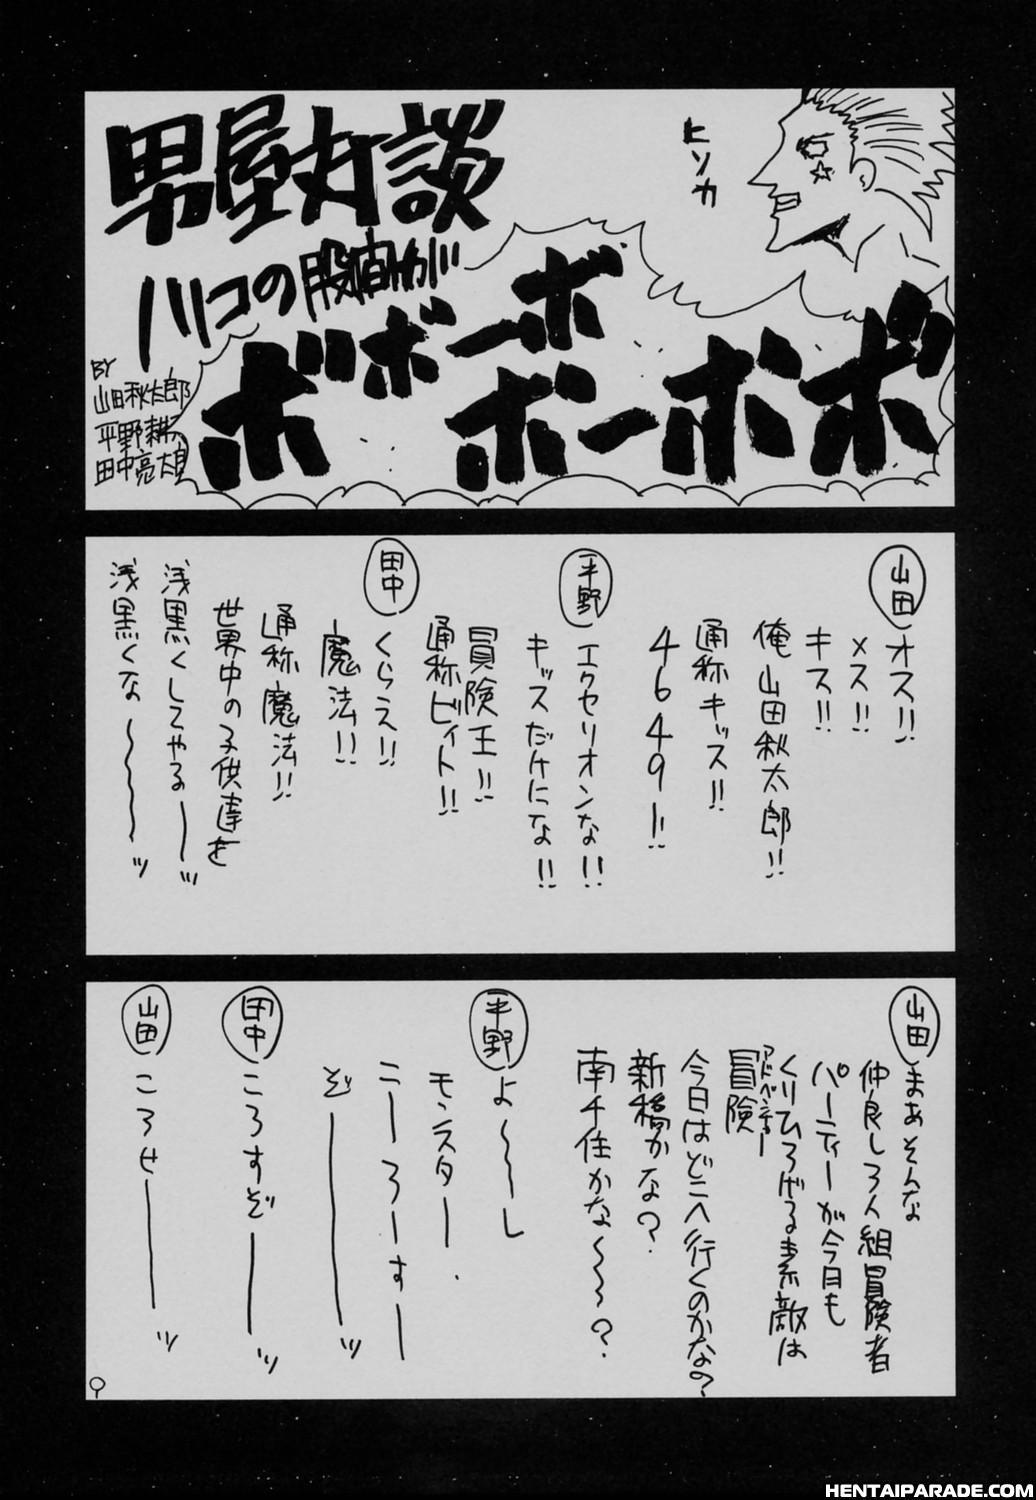 男屋対談
ハコの股間が
ボボーボ
ボーボボ
ヒソカ
BY
山田秋太郎
平野耕太
田中亮太郎
山田
オス!!
メス!!
キス!!
俺山田秋太郎!!
通称キッス!!
4649ー!!
平野
エクセリオンな!!
キッスだけにな!!
冒険王!!
通称ビィト!!
田中
くらえ!!
魔法!!
通称魔法!!
世界中の子供達を
浅黒くしてやるー〜ッ
浅黒くな〜〜〜ッ
山田
まあそんな
仲良し3人組冒険者
パーティーが今日も
くりひろげる素敵
アドベンチャー
冒険は
今日はどこへ行くのかな?
新橋かな?
南千住かな〜〜?
平野
よ〜〜し
モンスター
こーろーすー
ぞーーーッ
田中
ころすぞーーッ
山田
ころせーーーッ
HENTAIPARADE.COM